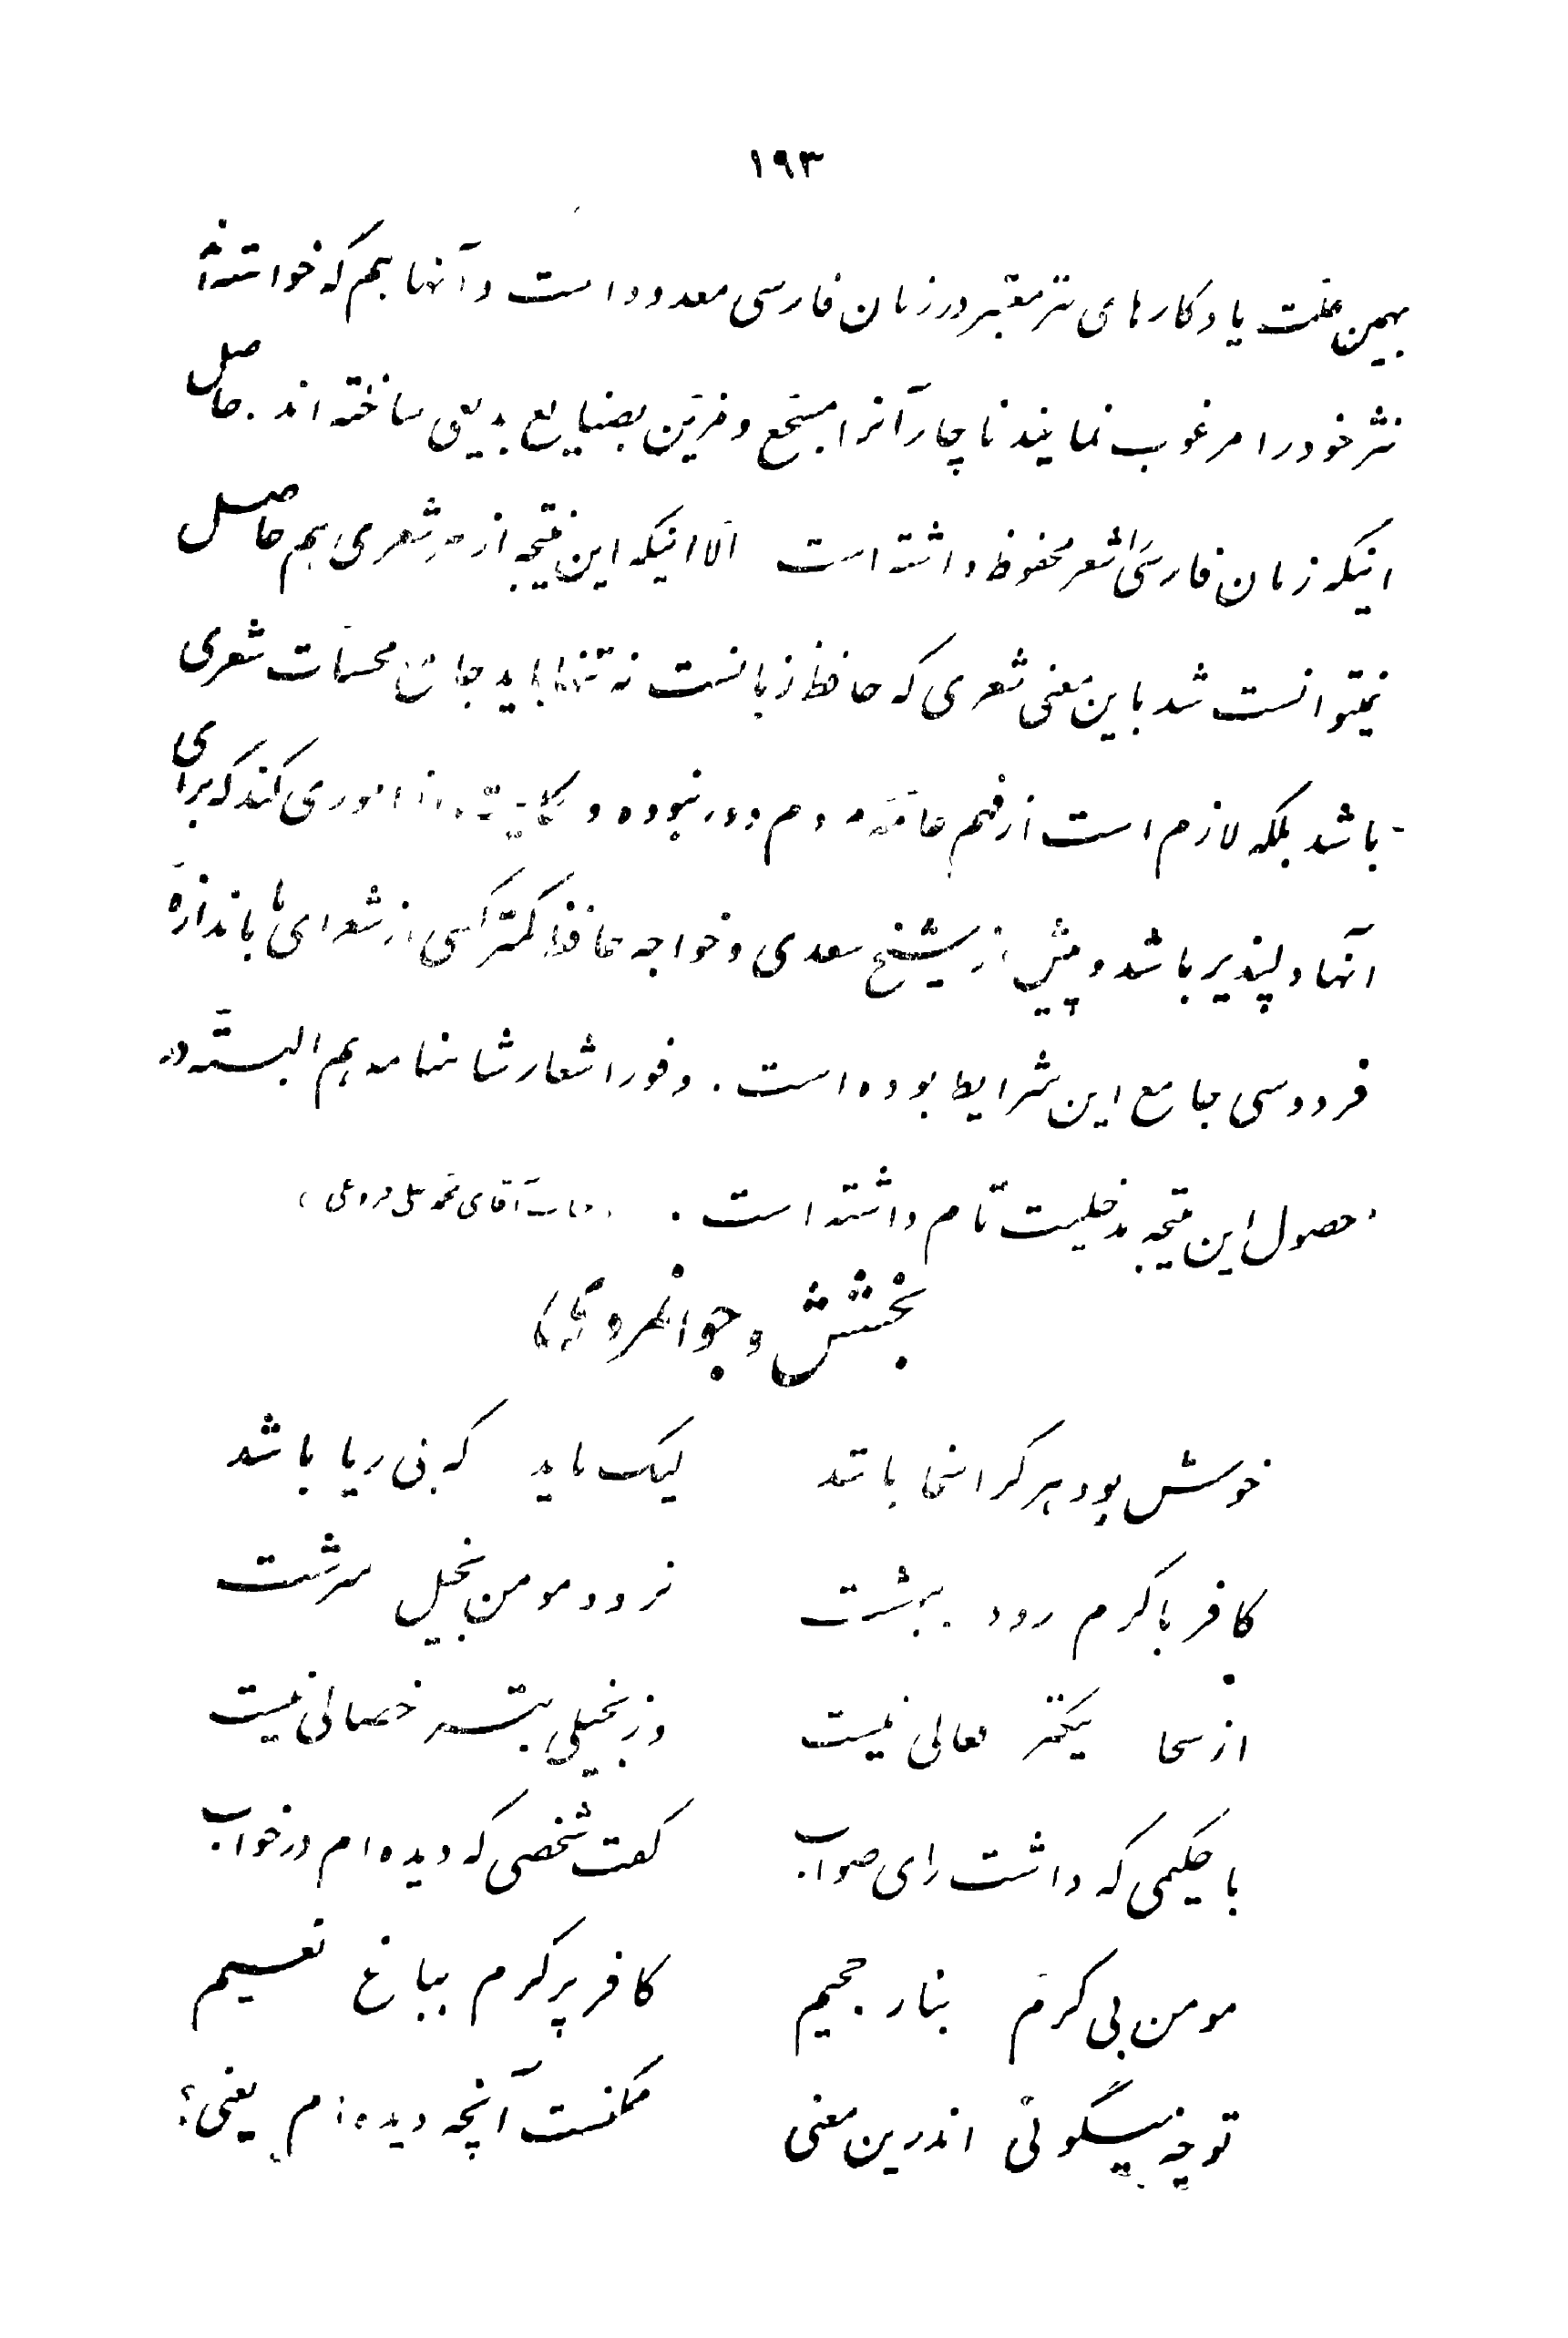 ۱۹۳
بهمین علت یادگارهای نثر معتبر در زبان فارسی معدود است و آنها هم که خواسته‌اند
نثر خود را مرغوب نمایند ناچار آنرا مسجّع و مزیّن بصنایع بدیعی ساخته‌اند. حاصل
اینکه زبان فارسی را شعر محفوظ داشته است الّا اینکه این نتیجه از هر شعری هم حاصل
نمیتوانست شد باین معنی شعری که حافظ زبانست نه تنها باید جامع محسنات شعری
باشد بلکه لازم است از فهم عامّهٔ مردم دور نبوده و حکایت از اموری کند که برای
آنها دلپذیر باشد و پیش از شیخ سعدی و خواجه حافظ کمتر کسی از شعرای ما باندازهٔ
فردوسی جامع این شرایط بوده است. وفور اشعار شاهنامه هم البتّه در
حصول این نتیجه مدخلیت تام داشته است. (جناب آقای محمد علی فروغی)
بخشش و جوانمردی
خوش بود هر کرا سخا باشد لیک باید که بی ریا باشد
کافر با کرم رود ببهشت نرود مومن بخیل سرشت
از سخا نیکتر فعالی نیست وز بخیلی بتر خصالی نیست
با حکیمی که داشت رای صواب گفت شخصی که دیده‌ام در خواب
مومن بی کرم بنار جحیم کافر پر کرم بباغ نعیم
تو چه میگوئی اندرین معنی ممکنست آنچه دیده‌ام یعنی؟